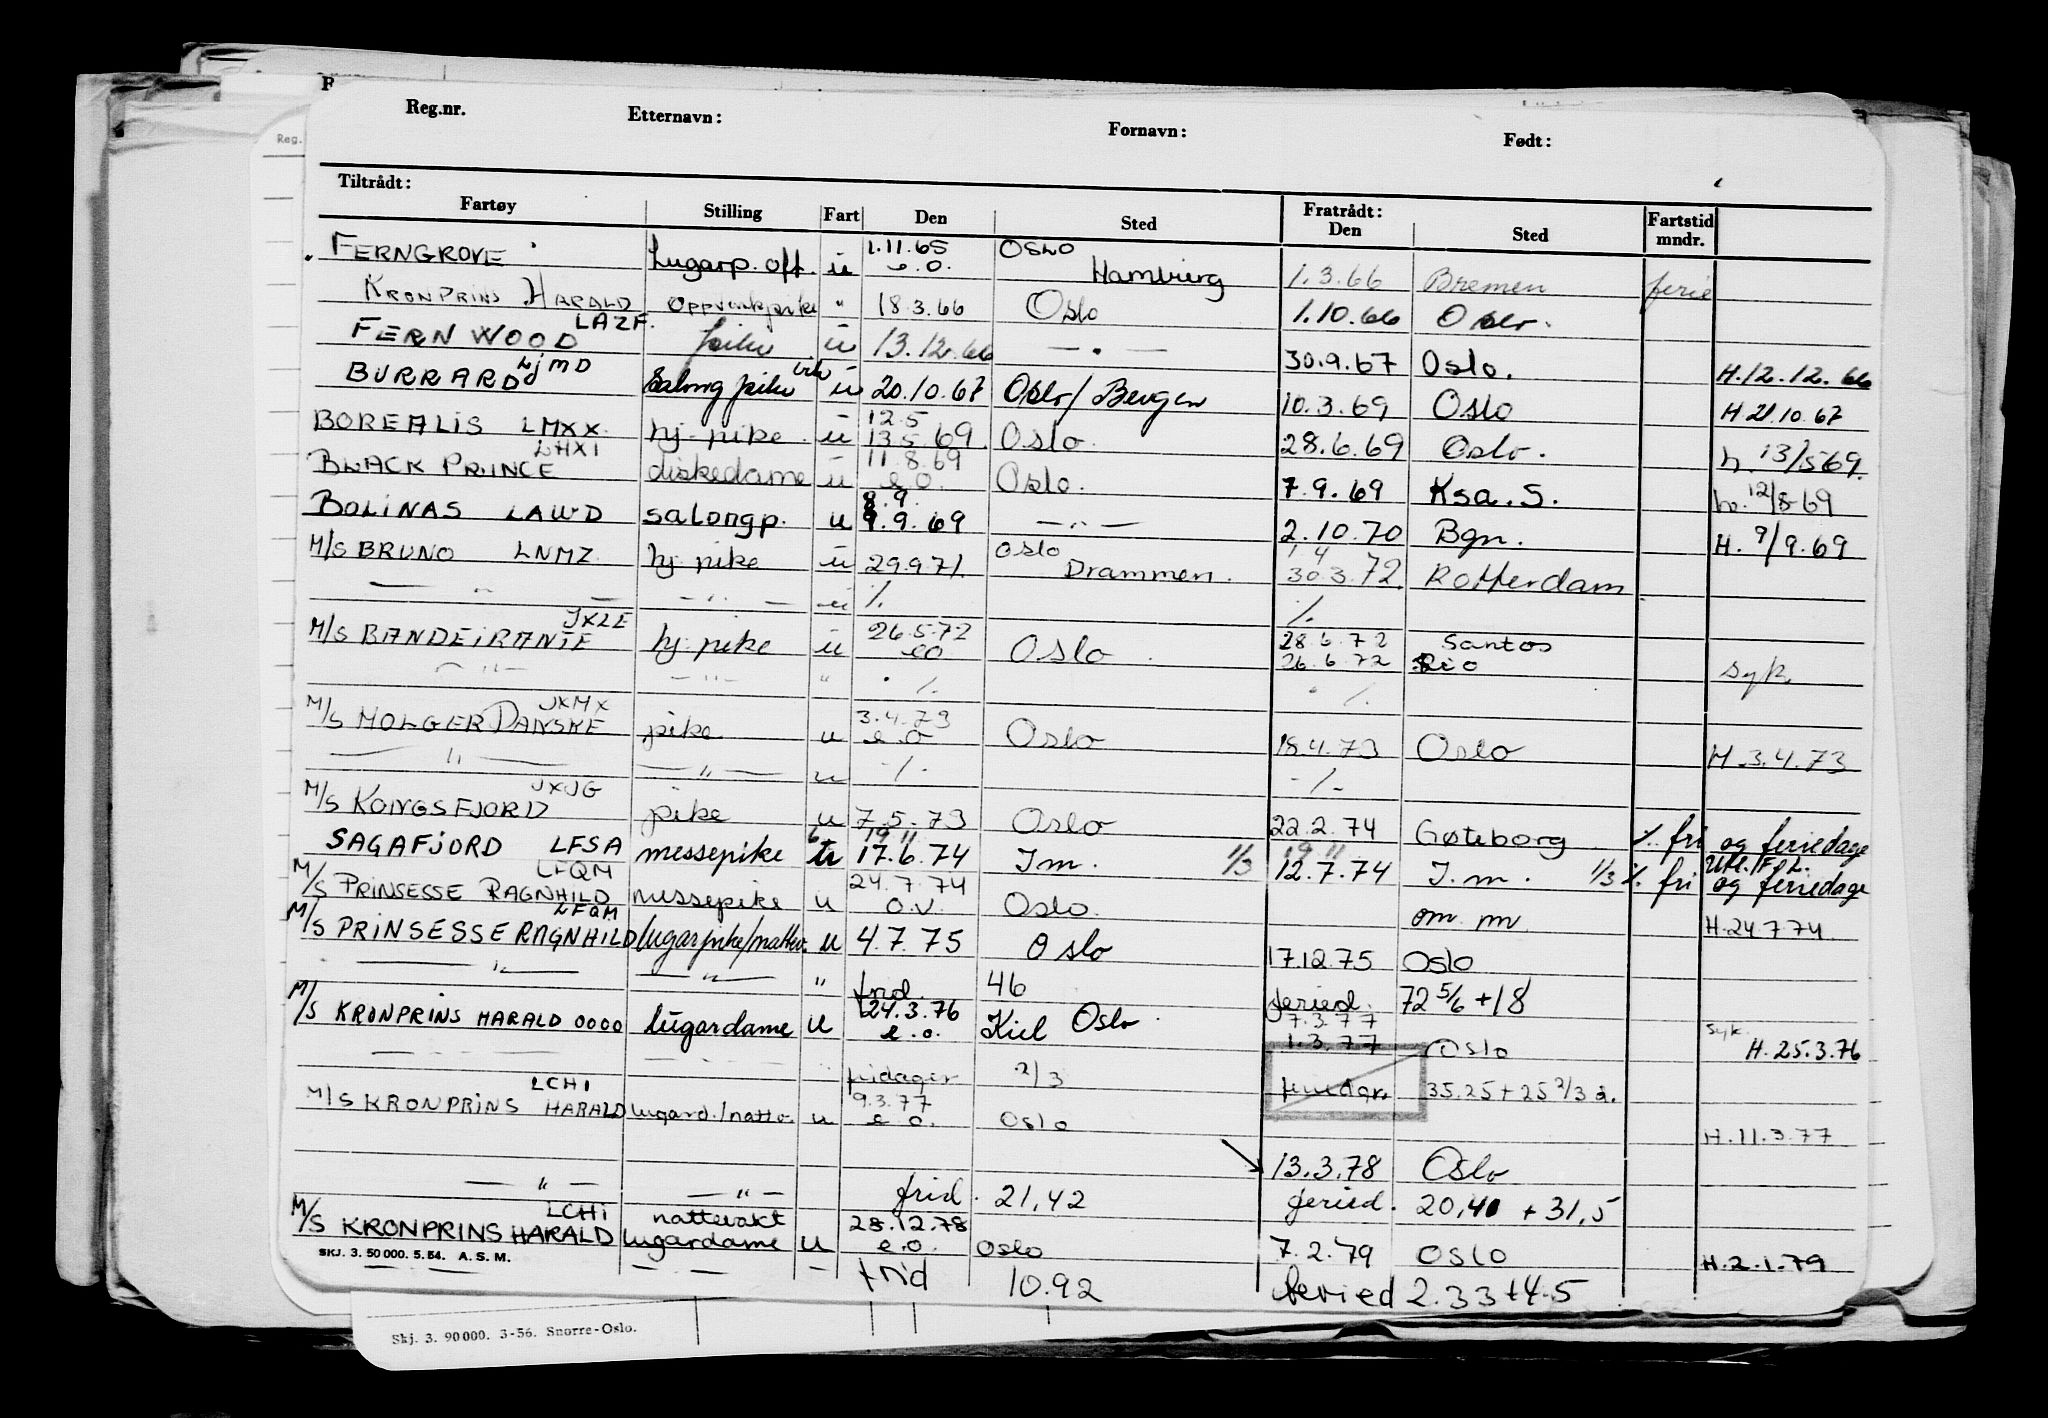 Reg.nr. Etternavn: Fornavn: Født:
Tiltrådt: Fratrådt:
Fartøy Stilling Fart Den Sted Den Sted Fartstid mndr.
FERNGROVE Lugarp. off. u 1.11.65 e.o. OSLO Hamburg 1.3.66 Bremen ferie
KRONPRINS HARALD " 18.3.66 Oslo 1.10.66 Oslo.
FERNWOOD LAZF. pike u 13.12.66 — " — 30.9.67 Oslo. H.12.12.66
BURRARD LJMD Salongpike u 20.10.67 Oslo/Bergen 10.3.69 Oslo H 21.10.67
BOREALIS LMXX hj. pike u 12.5 13.5.69 Oslo. 28.6.69 Oslo. h. 13/5 69.
BLACK PRINCE LHXI diskedame u 11.8.69 e.o. Oslo. 7.9.69 Ksa. S. h. 12/8 69
BOLINAS LAWD salongp. u 8.9. 9.9.69 — " — 2.10.70 Bgn. H. 9/9.69
M/S BRUNO LNMZ hj. pike u 29.9.71. OSLO Drammen. 1 4 30.3.72. Rotterdam
— " — — " — u ./. ./.
M/S BANDEIRANTE JXZE hj. pike u 26.5.72 eo Oslo 28.6.72 Santos
26.6.72 Rio syk
— " — — " — " ./. ./.
M/S HOLGER DANSKE JXMX pike u 3.4.73 e.o Oslo 18.4.73 Oslo H.3.4.73
— " — — " — u ./. ./.
M/S KONGSFJORD JXJG pike u 7.5.73 Oslo 22.2.74 Gøteborg ./. fri og feriedage
SAGAFJORD LFSA messepike tr 19 " 17.6.74 I m. 1/3 19 " 12.7.74 I. m. 1/3 ./. fri og feriedage
M/S PRINSESSE RAGNHILD LFQM messepike u 24.7.74 o.v. Oslo. om. m H.24.7.74
M/S PRINSESSE RAGNHILD LFQM lugarpike/nattev. u 4.7.75 Oslo 17.12.75 Oslo
— " — — " — " frid. 46 feried. 72 5/6 + 18
M/S KRONPRINS HARALD OOOO lugardame u 24.3.76 e.o. Kiel Oslo 7.3.77 1.3.77 Oslo syk. H.25.3.76
fridager 2/3 feriedgr. 35.25 + 25 2/3 d.
M/S KRONPRINS HARALD LCHI lugard./nattv. u 9.3.77 e.o. Oslo H.11.3.77
13.3.78 Oslo
— " — — " — frid. 21,42 feried. 20,41 + 31,5
M/S KRONPRINS HARALD LCHI nattevakt lugardame u 28.12.78 e.o. Oslo 7.2.79 OSLO H.2.1.79
SKJ. 3. 50 000. 5. 54. A. S. M.
frid 10.92 feried 2.33+4.5
Skj. 3. 90000. 3-56. Snorre-Oslo.